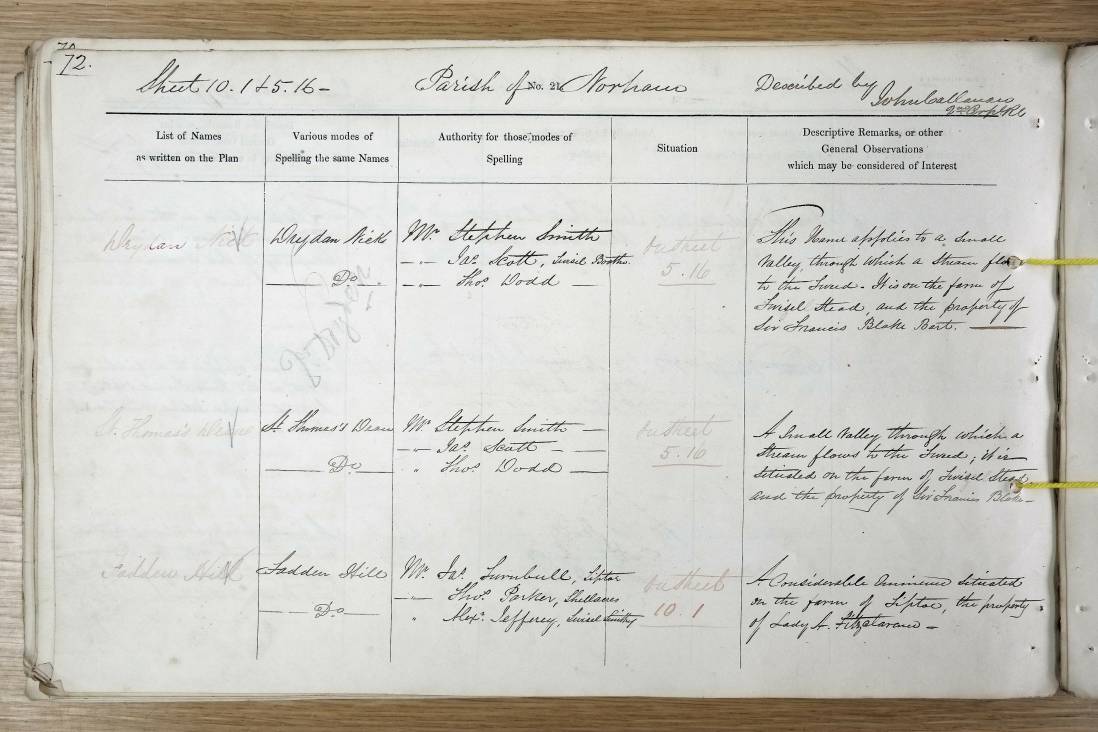 72.
Sheet 10.1 & 5.16 -
Parish of No. 21 Norham
Described by
John Callanan
2nd Corpl RE
List of Names
as written on the Plan
Various modes of
Spelling the same Names
Authority for those modes of
Spelling
Situation
Descriptive Remarks, or other
General Observations
which may be considered of Interest
Dreydan Nick
Dreydan Nick
Do.
Mr. Stephen Smith
-"- Jas. Scott, Twisel
-"- Thos. Dodd -
On Sheet
5.16
This Name applies to a small
Valley, through which a Stream
to the Tweed - It is on the farm of
Twisel Stead, and the property of
Sir Francis Blake Bart.
St. Thomas's Dean
St. Thomas's Dean
Do
Mr. Stephen Smith -
-"- Jas. Scott - -
" Thos. Dodd -
On Sheet
5.16
A Small Valley through which a
Stream flows to the Tweed; it is
situated on the farm of Twisel Stead
and the property of Sir Francis Blake -
Fadden Hill
Fadden Hill
Do
Mr. Jas. Turnbull, Tiptoe
-"- Thos. Parker, Shellacres
" Alexr. Jefferey, Twisel Smithy
On Sheet
10.1
A Considerable Eminence situated
on the farm of Tiptoe, the property
of Lady A. Fitzclarence -